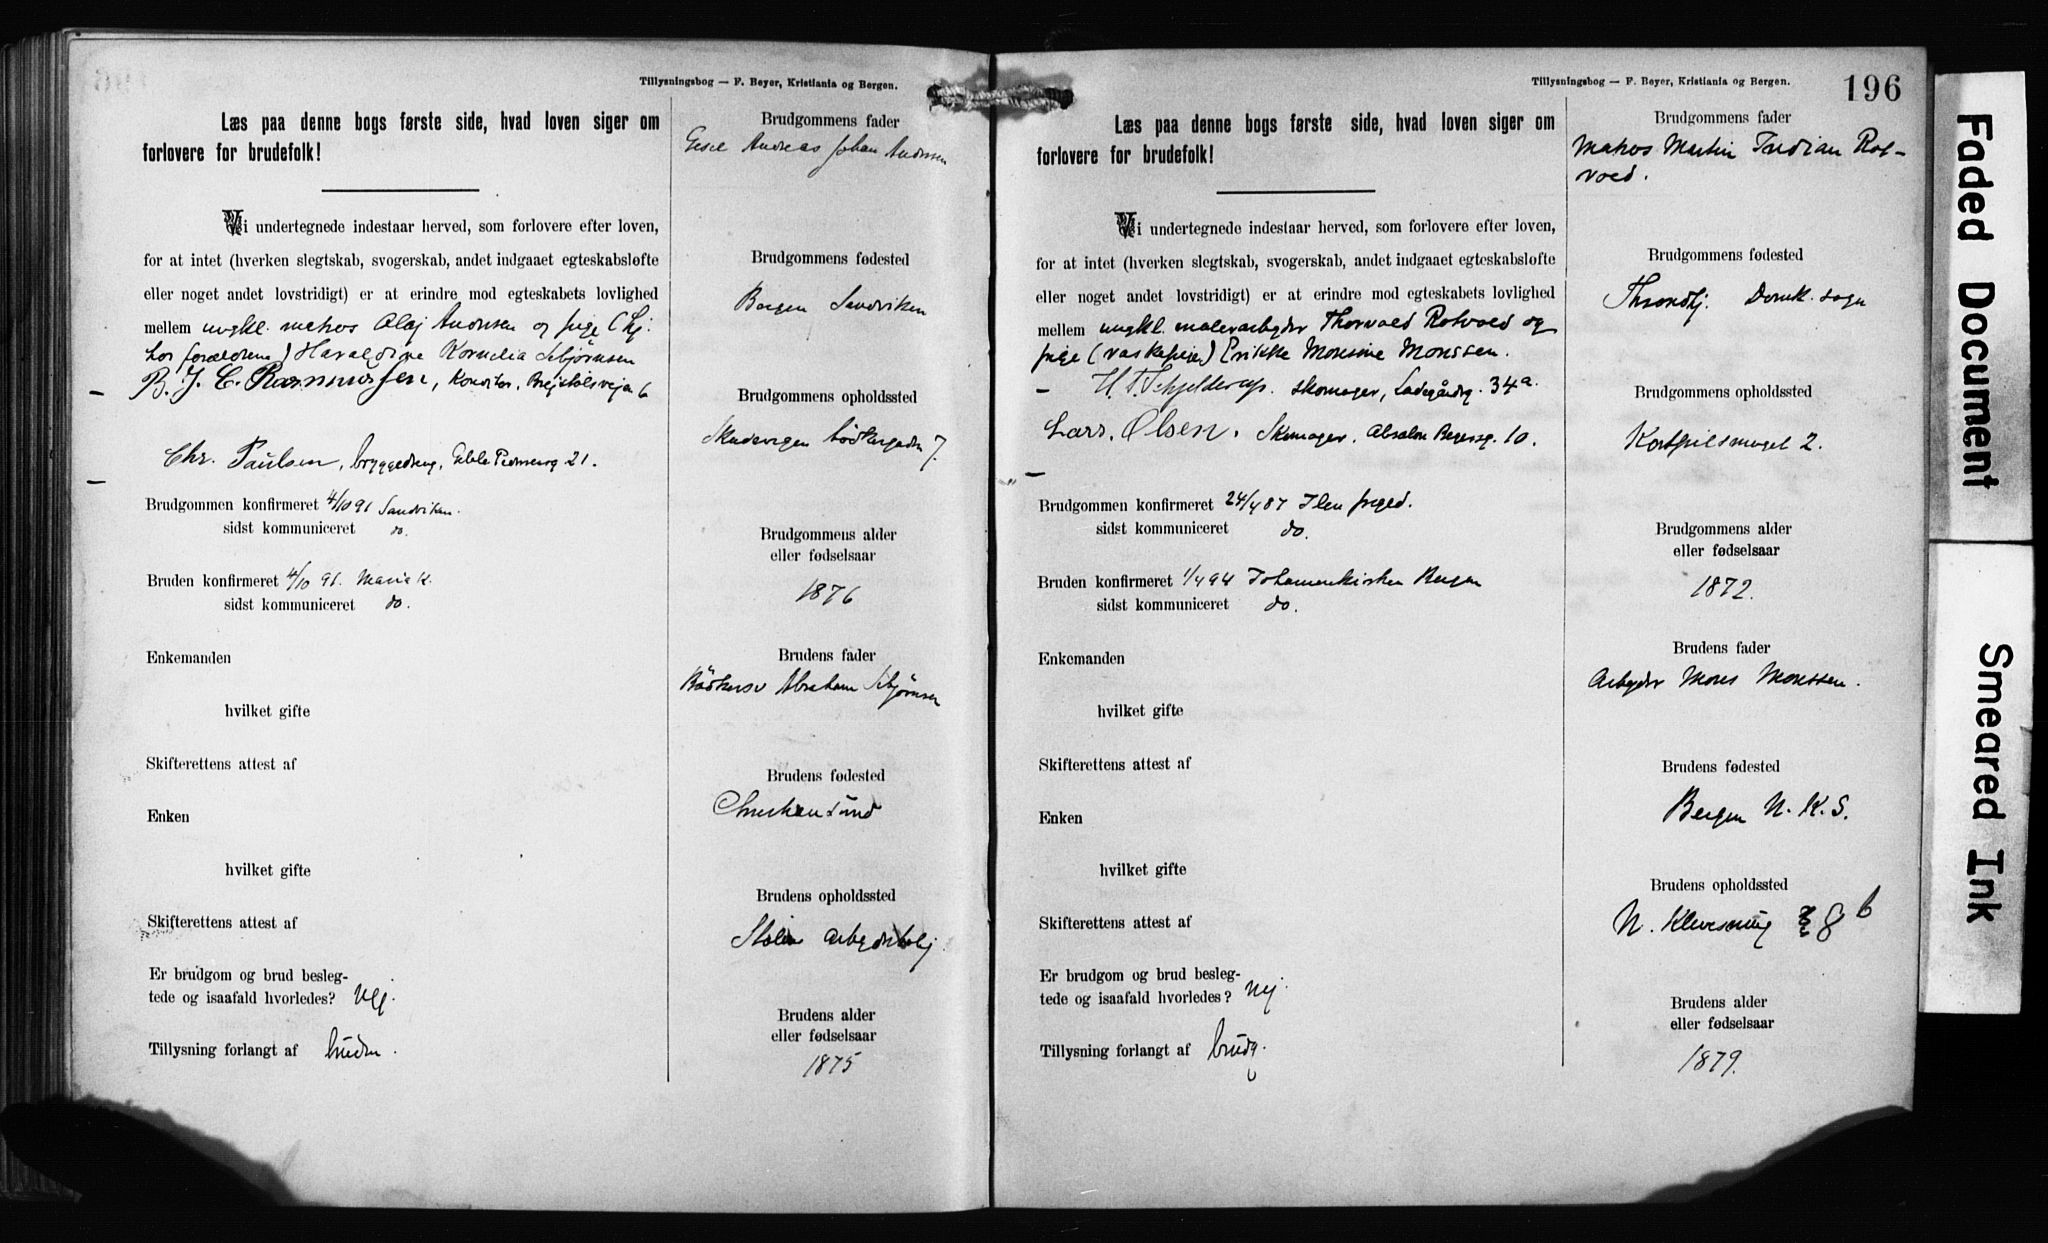 Tillysningsbog — F. Beyer, Kristiania og Bergen.
Læs paa denne bogs første side, hvad loven siger om
forlovere for brudefolk!
Vi undertegnede indestaar herved, som forlovere efter loven,
for at intet (hverken slegtskab, svogerskab, andet indgaaet egteskabsløfte
eller noget andet lovstridigt) er at erindre mod egteskabets lovlighed
mellem ungkl. matros Olaf Andersen og pige (hj.
hos forældrene) Haraldine Kornelia
B. J. C. Rasmussen, Konditor, 6
Chr. Paulsen, bryggedreng, 21.
Brudgommen konfirmeret 4/10 91 Sandviken.
sidst kommuniceret do.
Bruden konfirmeret 4/10 91. Maria K.
sidst kommuniceret do.
Enkemanden
hvilket gifte
Skifterettens attest af
Enken
hvilket gifte
Skifterettens attest af
Er brudgom og brud besleg-
tede og isaafald hvorledes? Nej.
Tillysning forlangt af bruden.
Brudgommens fader
Andreas Johan Andersen
Brudgommens fødested
Bergen Sandviken
Brudgommens opholdssted
Skudevigen 7.
Brudgommens alder
eller fødselsaar
1876
Brudens fader
Bödkersv Abraham
Brudens fødested
Christiansund
Brudens opholdssted
Stølen arbejderbolig
Brudens alder
eller fødselsaar
1875
Tillysningsbog — F. Beyer, Kristiania og Bergen.
196
Læs paa denne bogs første side, hvad loven siger om
forlovere for brudefolk!
Vi undertegnede indestaar herved, som forlovere efter loven,
for at intet (hverken slegtskab, svogerskab, andet indgaaet egteskabsløfte
eller noget andet lovstridigt) er at erindre mod egteskabets lovlighed
mellem ungkl. malerarbeider Thorvald Rotvold og
pige (vaskepige) Erikke Monsine Monssen.
H. T. Schjelderup. skomager, Ladegårdsg. 34a.
Lars. Olsen. Skomager. Absalon Beyersg. 10.
Brudgommen konfirmeret 24/4 87 Ilen
sidst kommuniceret do.
Bruden konfirmeret 1/4 94 Johanneskirken Bergen
sidst kommuniceret do.
Enkemanden
hvilket gifte
Skifterettens attest af
Enken
hvilket gifte
Skifterettens attest af
Er brudgom og brud besleg-
tede og isaafald hvorledes? Nej
Tillysning forlangt af brudg.
Brudgommens fader
Matros Martin Indian Rot-
vold.
Brudgommens fødested
Throndhj. Domk. sogn
Brudgommens opholdssted
Kortpilsmuget 2.
Brudgommens alder
eller fødselsaar
1872.
Brudens fader
Arbejder Mons Monssen.
Brudens fødested
Bergen N. K. S.
Brudens opholdssted
N. 8 b
Brudens alder
eller fødselsaar
1879.
Faded Document
Smeared Ink